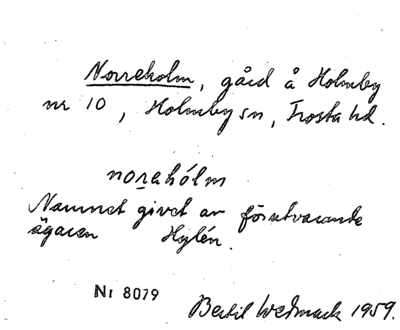 Norreholm, gård å Holmby
nr 10, Holmby sn, Frosta hd.
norahólm
Namnet givet av förutvarande
ägaren Hylén.
Nr 8079
Bertil Wedmark 1959.